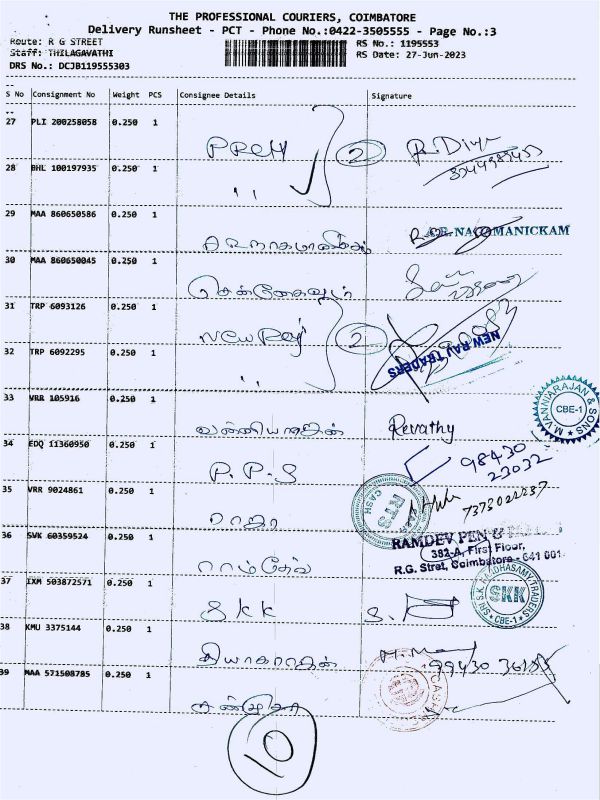 THE PROFESSIONAL COURIERS, COIMBATORE
Delivery Runsheet - PCT - Phone No.:0422-3505555 - Page No.:3
Route: R G STREET RS No.: 1195553
Staff: THILAGAVATHI RS Date: 27-Jun-2023
DRS No.: DCJB119555303
S No Consignment No Weight PCS Consignee Details Signature
27 PLI 200258058 0.250 1
PRCH 2 R. Divya
28 BHL 100197935 0.250 1
" ✓
29 MAA 860650586 0.250 1
A.R. NAGAMANICKAM
30 MAA 860650045 0.250 1
31 TRP 6093126 0.250 1
New Raj 2
NEW RAJ TRADERS
32 TRP 6092295 0.250 1
"
33 VRR 105916 0.250 1
வன்னியராஜன் Revathy
M.VANNIARAJAN & SONS CBE-1
34 EDQ 11360950 0.250 1
P.P.S 98430 23032
35 VRR 9024861 0.250 1
ராஜா 7373022237
RTS CASH
36 SVK 60359524 0.250 1
ராம்தேவ்
RAMDEV PEN &
382-A, First Floor,
R.G. Stret, Coimbatore - 641 001.
37 IXM 503872571 0.250 1
SKK S.
SRI S.K. RADHASAMY TRADERS SKK CBE-1
38 KMU 3375144 0.250 1
தியாகராஜன் 99430
39 MAA 571508785 0.250 1
10